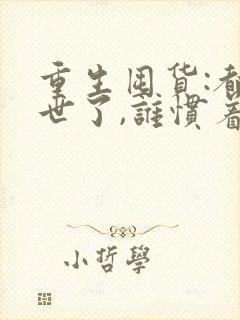 重生囤货:都
世了,誰慣着
小哲學